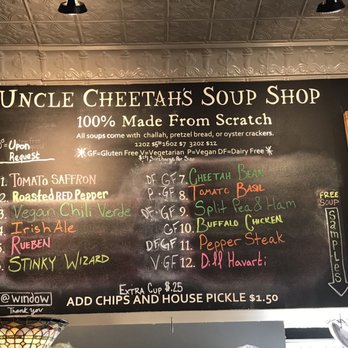 UNCLE CHEETAH'S SOUP SHOP
100% Made From Scratch
All soups come with challah, pretzel bread, or oyster crackers.
12oz $5 16oz $7 32oz $12
GF=Gluten Free V=Vegetarian P=Vegan DF=Dairy Free
Upon
Request
1. TOMATO SAFFRON DF GF
2. Roasted RED Pepper P GF
3. Vegan Chili Verde DF GF
4. Irish Ale GF
5. RUEBEN DF GF
6. STINKY WIZARD V GF
7. CHEETAH BEAN
8. TOMATO BASIL
9. Split Pea & Ham
10. BUFFALO CHICKEN
11. Pepper Steak
12. Dill Havarti
FREE
SOUP
SAMPLES
EXTRA CUP $.25
ADD CHIPS AND HOUSE PICKLE $1.50
@ WINDOW
THANK YOU